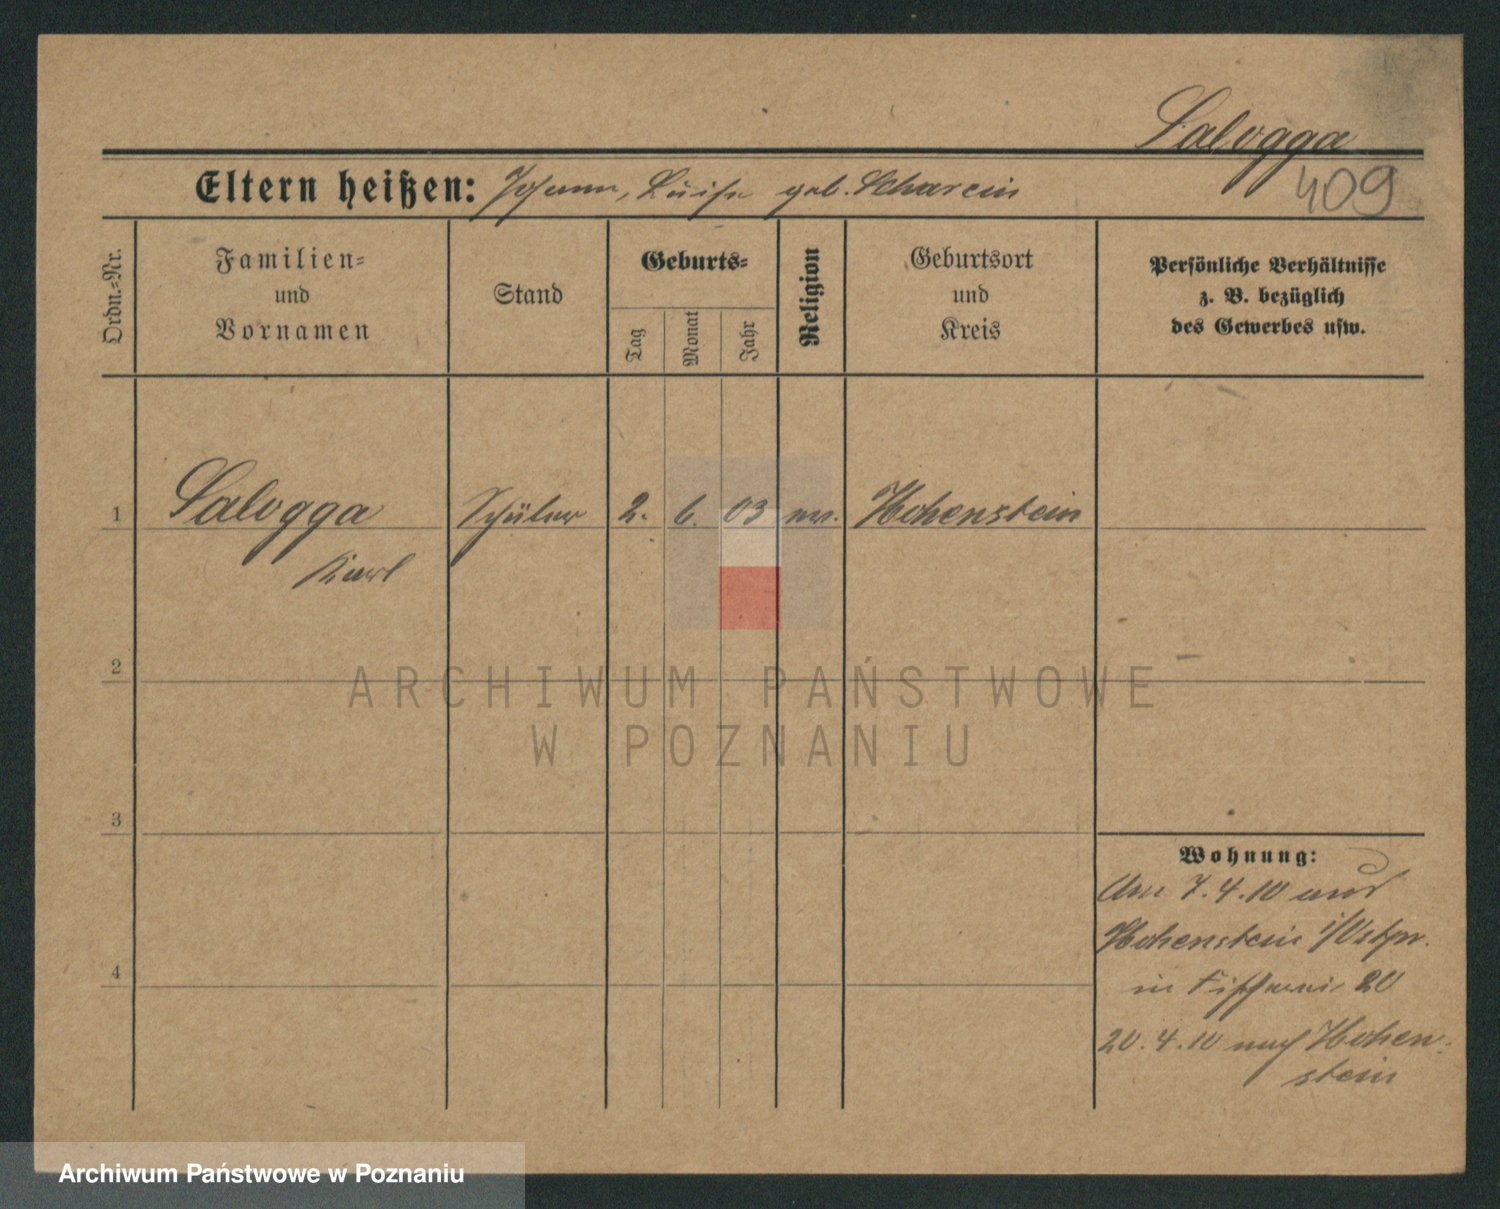 Salogga
409
Eltern heißen: Johann, Luise geb. Scharein
Ordn.-Nr.
Familien- und Vornamen
Stand
Geburts-
Tag
Monat
Jahr
Religion
Geburtsort und Kreis
Persönliche Verhältnisse
z. B. bezüglich
des Gewerbes usw.
1 Salogga Schüler 2. 6. 03 ev. Hohenstein
Karl
2
ARCHIWUM PAŃSTWOWE
W POZNANIU
3
Wohnung:
7.4.10
Hohenstein i/Ostpr.
in Fischerei 20
4
20.4.10 nach Hohen-
stein
Archiwum Państwowe w Poznaniu